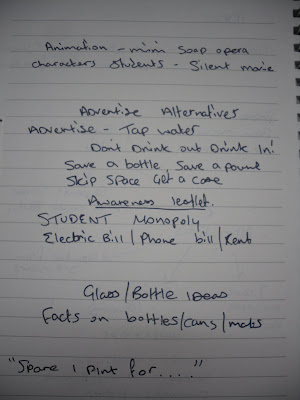 Animation - mini soap opera
characters students - Silent movie
Advertise Alternatives
Advertise - Tap water
Don't Drink out Drink In!
Save a bottle, Save a pound
Skip Space Get a Case
Awareness leaflet.
STUDENT Monopoly
Electric Bill / Phone bill / Rent
Glass / Bottle Ideas
Facts on bottles/cans/mats
"Spare 1 pint for...."